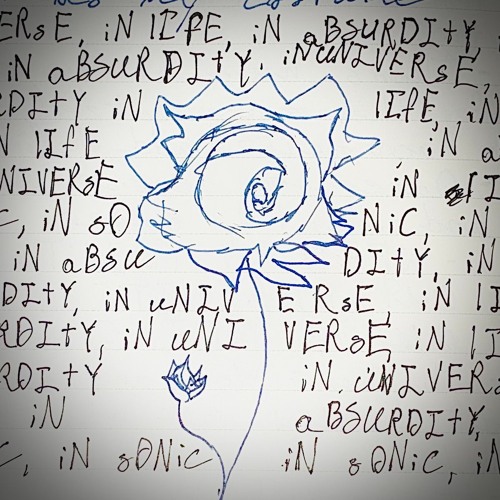 ERsE, iN lIfE, iN aBSURDItY,
iN aBSURDItY. iN UNIVERsE,
RDItY iN lIfE, iN
N lIfE iN a
NIVERsE iN lI
C, iN sO NiC, iN
iN aBSU DItY, iN
DItY, iN uNIV ERsE, iN lI
RDItY, iN uNI VERsE iN lI
RDItY iN uNIVERs
iN aBSURDItY,
C, iN sONiC iN sONiC, iN